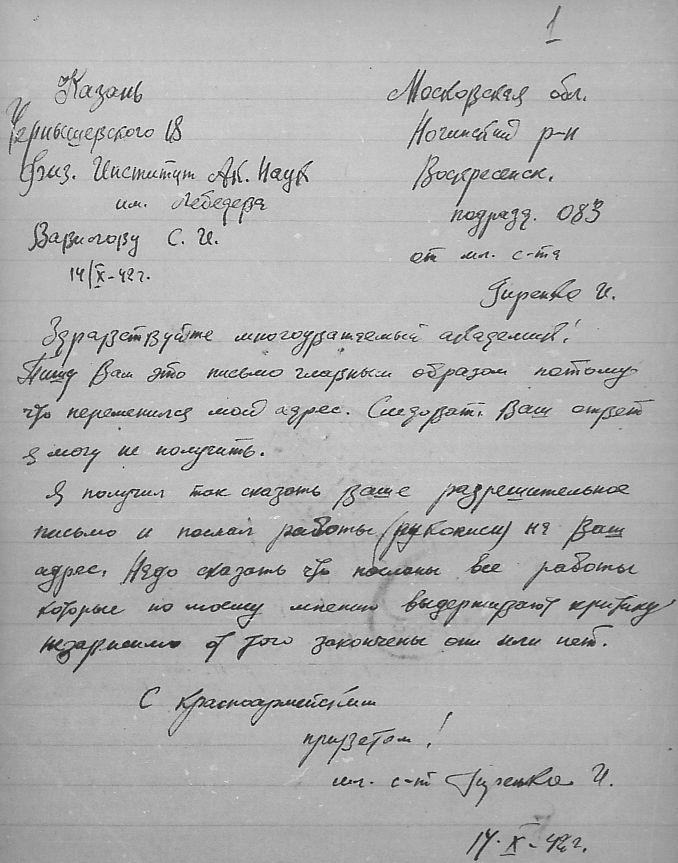 1
Казань
Чернышевского 18
Физ. Институт Ак. Наук
им. Лебедева
Вавилову С. И.
14/X-42г.
Московская обл.
Ногинский р-н
Воскресенск.
подразд. 083
от мл. с-та
Гиренко И.
Здравствуйте многоуважаемый академик!
Пишу Вам это письмо главным образом потому
что переменился мой адрес. Следоват. Ваш ответ
я могу не получить.
Я получил так сказать Ваше разрешительное
письмо и послал работы (рукописи) на Ваш
адрес. Надо сказать что посланы все работы
которые по моему мнению выдерживают критику
независимо от того закончены они или нет.
С красноармейским
приветом!
мл. с-т Гиренко И.
14. X-42г.